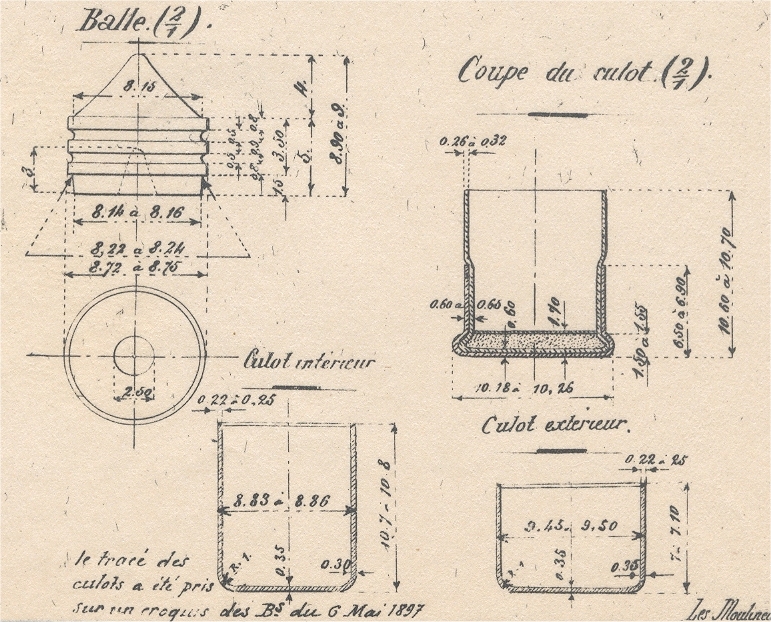 Balle. (2/1).
8.15
4.
5.
8.90 à 9
3.50
1.5
3
8.14 à 8.16
8,22 à 8.24
8.72 à 8.75
2.50
Coupe du culot. (2/1).
0.26 à 0,32
0.60 à 0.65
0.60
1.70
6.50 à 6.90
10.60 à 10.70
10.18 à 10,26
Culot intérieur
0.22 à 0,25
8.83 à 8.86
10.7 à 10.8
R. 1.
0.35
0.30
Culot extérieur.
0.22 à 25
9.45 à 9.50
7 à 7.10
0.35
0.35
le tracé des
culots a été pris
sur un croquis des Bs du 6 Mai 1897
Les Moulinea